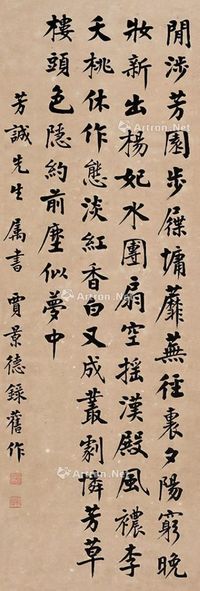 閒涉芳園步屧慵蘼蕪徑裏夕陽窮晚
妝新出楊妃水團扇空搖漢殿風穠李
夭桃休作態淡紅香白又成叢劇憐芳草
樓頭色隱約前塵似夢中
芳誠先生屬書 賈景德錄舊作
Artron.Net